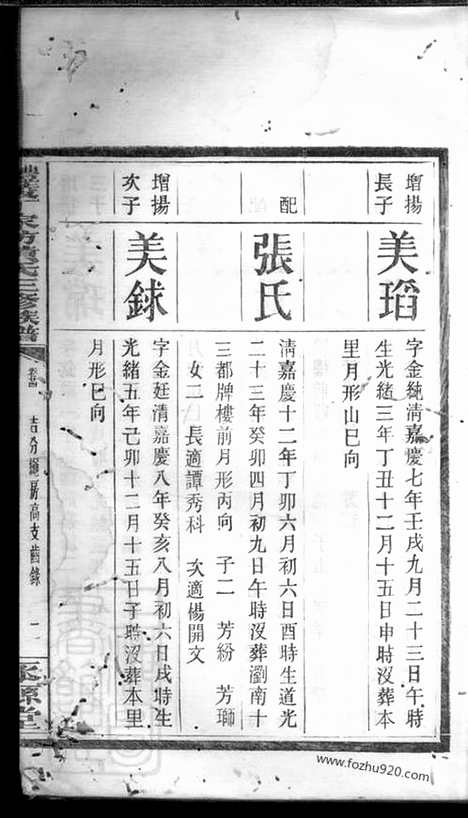 增揚
長子
美瑫
字金純清嘉慶七年壬戌九月二十三日午時
生光緒三年丁丑十二月十五日申時沒葬本
里月形山巳向
配
張氏
清嘉慶十二年丁卯六月初六日酉時生道光
二十三年癸卯四月初九日午時沒葬瀏南十
三都牌樓前月形丙向 子二 芳紛 芳瑡
女二 長適譚秀科 次適楊開文
增揚
次子
美銶
字金廷清嘉慶八年癸亥八月初六日戌時生
光緒五年己卯十二月十五日子時沒葬本里
月形巳向
氏三修族譜
吉分 房高支齒錄 一
源堂
www.fozhu920.com